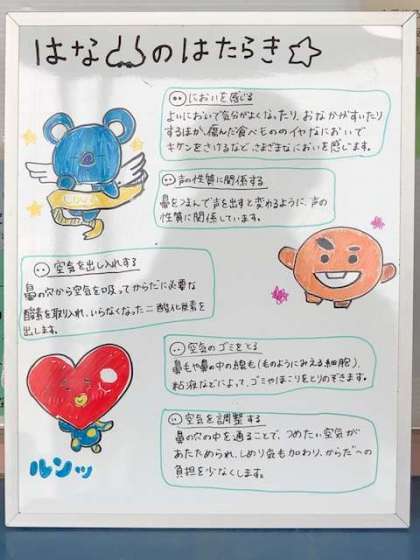 はなのはたらき☆
においを感じる
よいにおいで気分がよくなったり、おなかがすいたり
するほか、傷んだ食べもののイヤなにおいで
キケンをさけるなど、さまざまなにおいを感じます。
声の性質に関係する
鼻をつまんで声を出すと変わるように、声の
性質に関係しています。
空気を出し入れする
鼻の穴から空気を吸ってからだに必要な
酸素を取り入れ、いらなくなった二酸化炭素を
出します。
空気のゴミをとる
鼻毛や鼻の中の線毛(毛のようにみえる細胞)、
粘液などによって、ゴミやほこりをとりのぞきます。
空気を調整する
鼻の穴の中を通ることで、つめたい空気が
あたためられ、しめり気も加わり、からだへの
負担を少なくします。
ルンッ